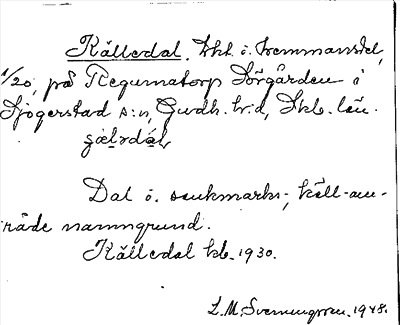 Källedal. Lht. i. hemmansdel,
1/20, på Regumatorp Sörgården i
Sjogerstad s:n, Gudh. h:d, Skb. län.
Dal i. sankmarks-, käll-om-
råde namngrund.
Källedal kb. 1930.
L.M. Svenungsson. 1948.